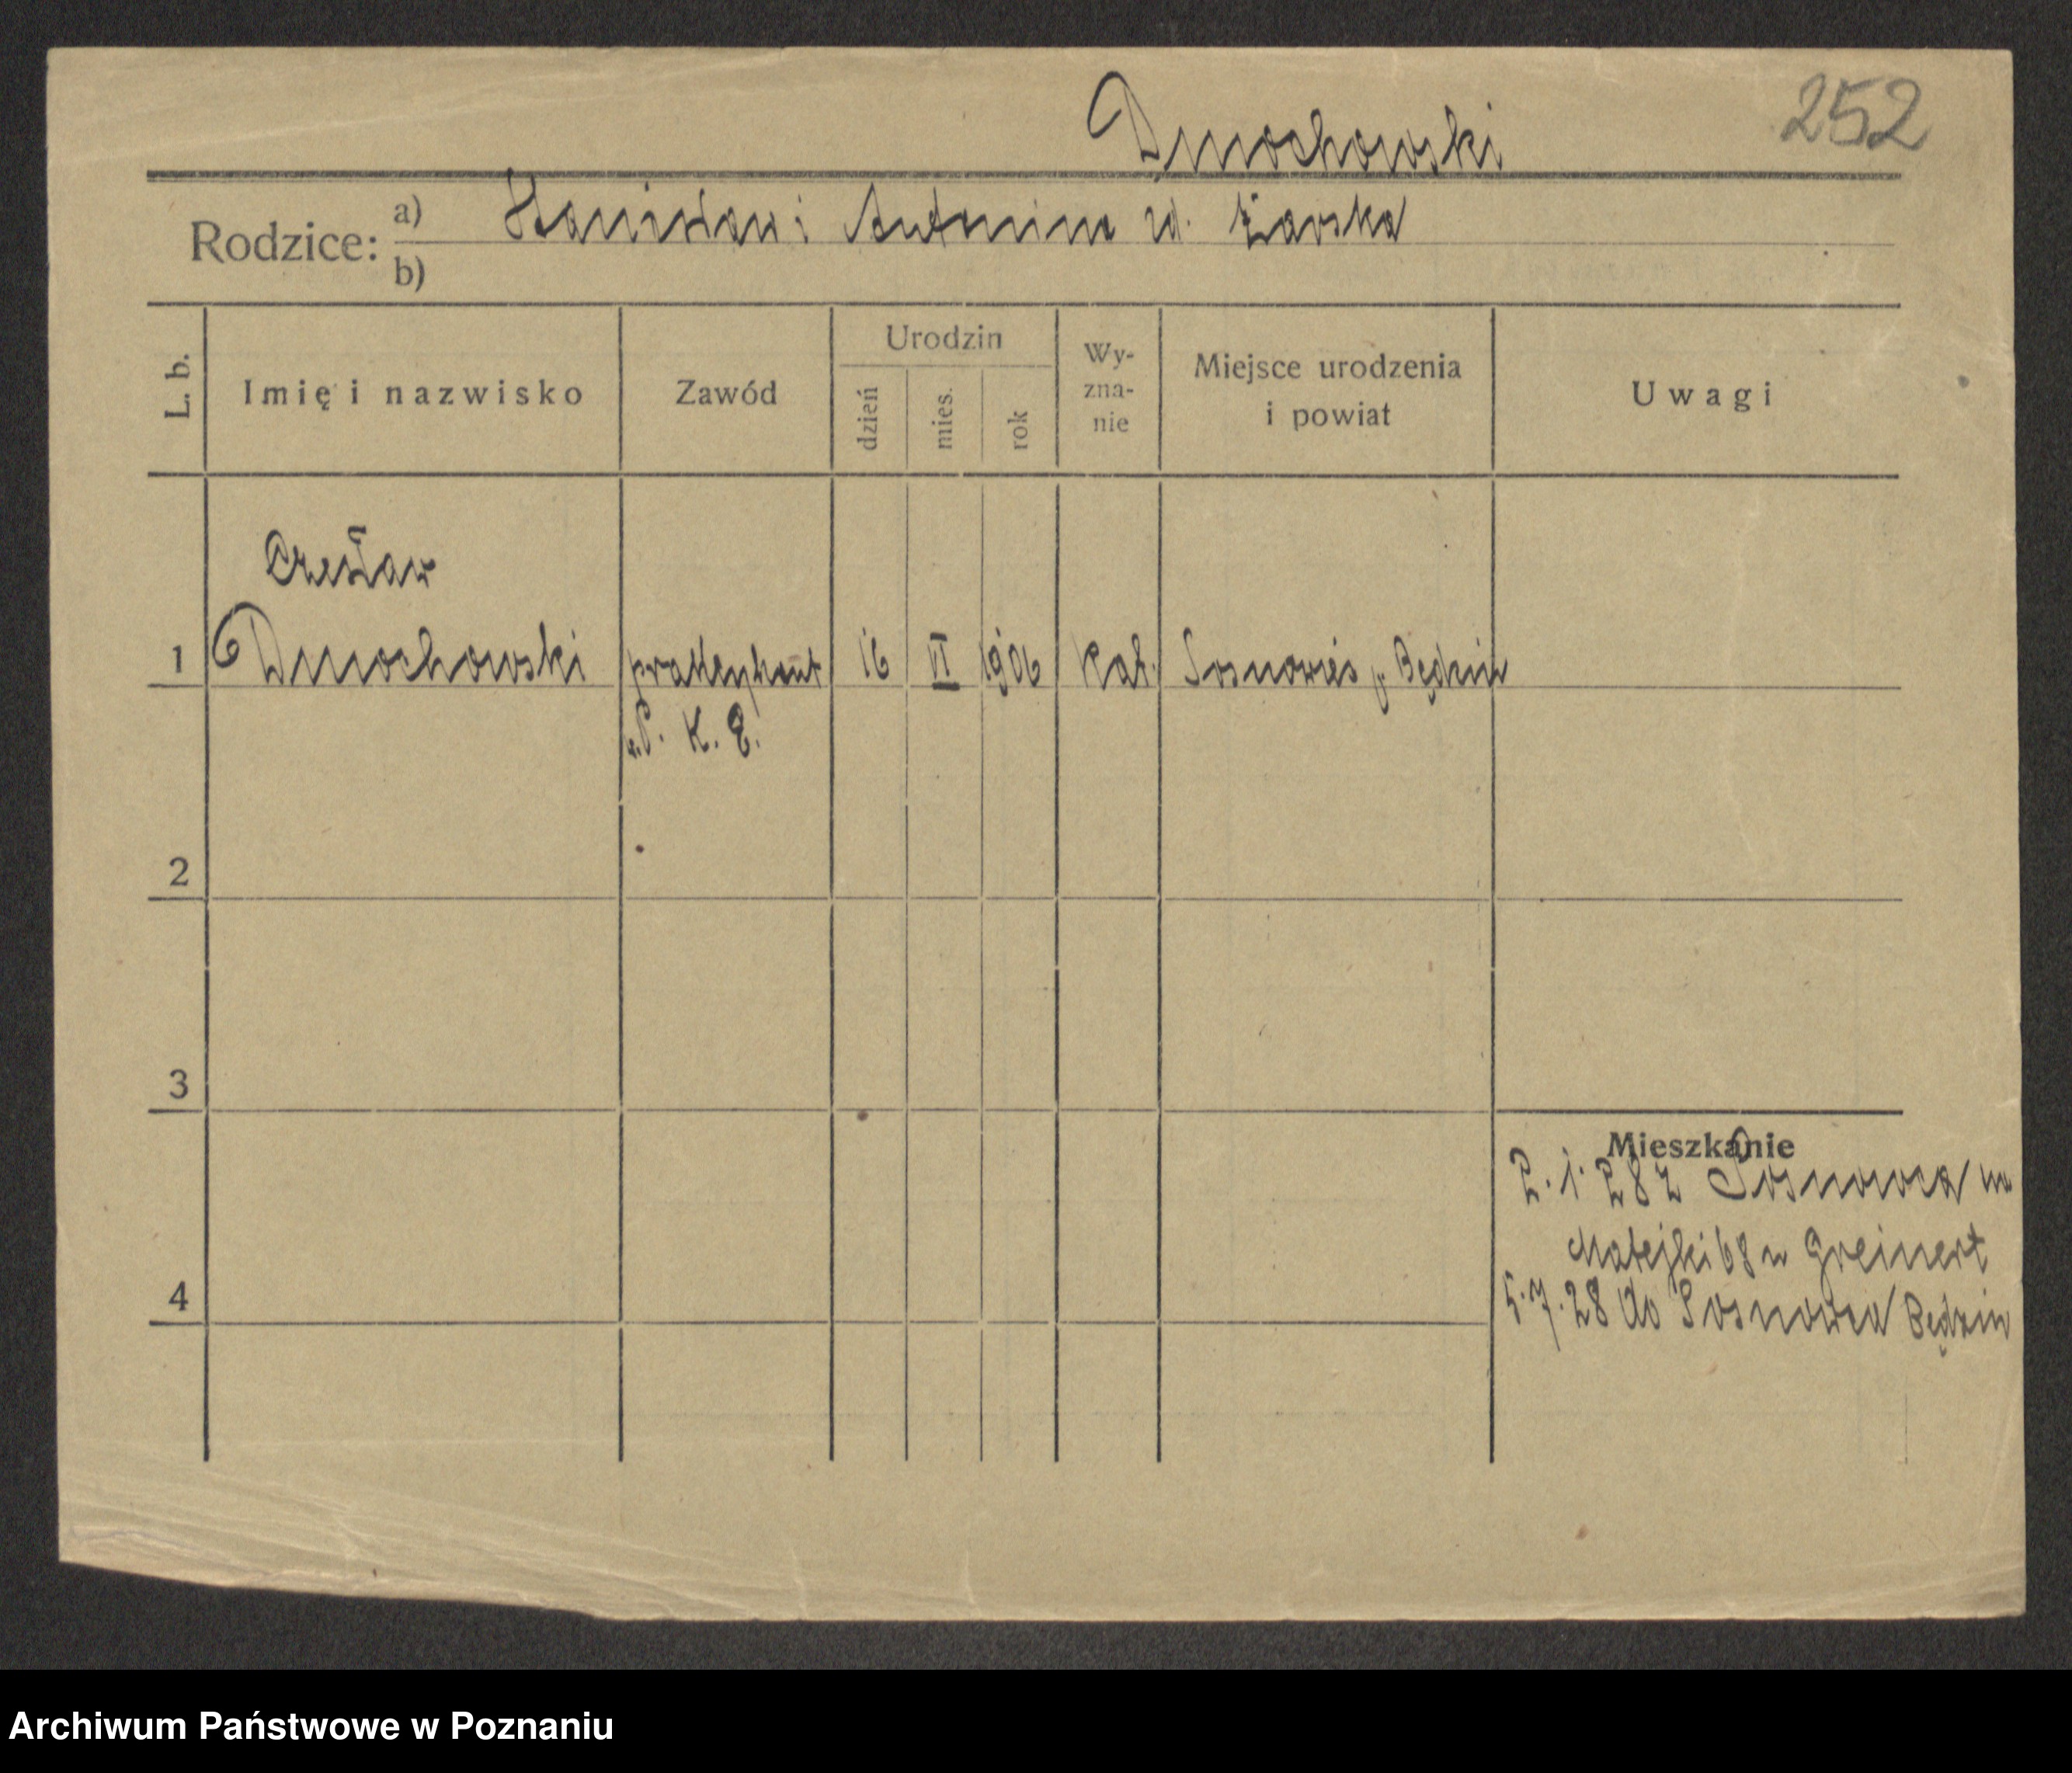 252
Dmochowski
Rodzice: a) Stanisław i Antonina zd. Żarska
b)
L. b. Imię i nazwisko Zawód Urodzin dzień mies. rok Wy-zna-nie Miejsce urodzenia i powiat Uwagi
Czesław
1 Dmochowski praktykant 16 VI 1906 kat. Sosnowies p. Będzin
P. K. E.
2
3
Mieszkanie
2. 1. 28 z Sosnowca na
Matejki 68 u Greinert
4
5.7.28 do Sosnowca Będzin
Archiwum Państwowe w Poznaniu